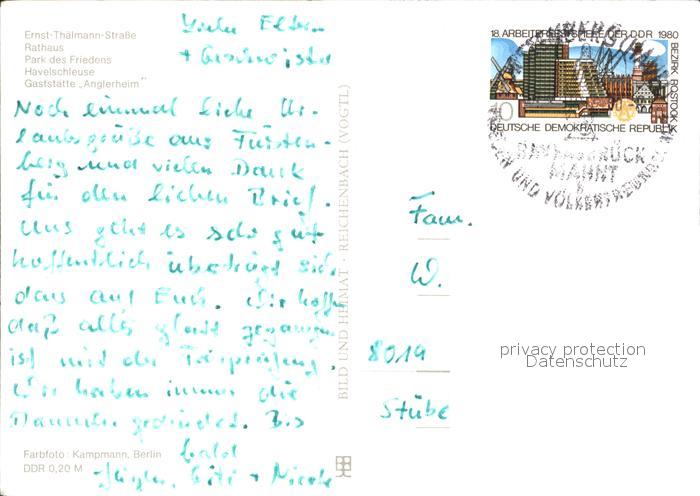 Ernst-Thälmann-Straße
Rathaus
Park des Friedens
Havelschleuse
Gaststätte „Anglerheim"
Liebe Eltern
+ Geschwister
Noch einmal liebe Ur-
laubsgrüße aus Fürsten-
berg und vielen Dank
für den lieben Brief.
Uns geht es sehr gut
hoffentlich überträgt sich
das auf Euch. Wir hoffen
daß alles glatt gegangen
ist mit der
Wir haben immer die
Daumen gedrückt. Bis
bald
+ Nicole
Farbfoto: Kampmann, Berlin
DDR 0,20 M
BILD UND HEIMAT · REICHENBACH (VOGTL)
18. ARBEITERFESTSPIELE DER DDR 1980
BEZIRK ROSTOCK
10
DEUTSCHE DEMOKRATISCHE REPUBLIK
RAVENSBRÜCK
MAHNT
UND VÖLKERFREUND
Fam.
W.
8019
Stübe
privacy protection
Datenschutz